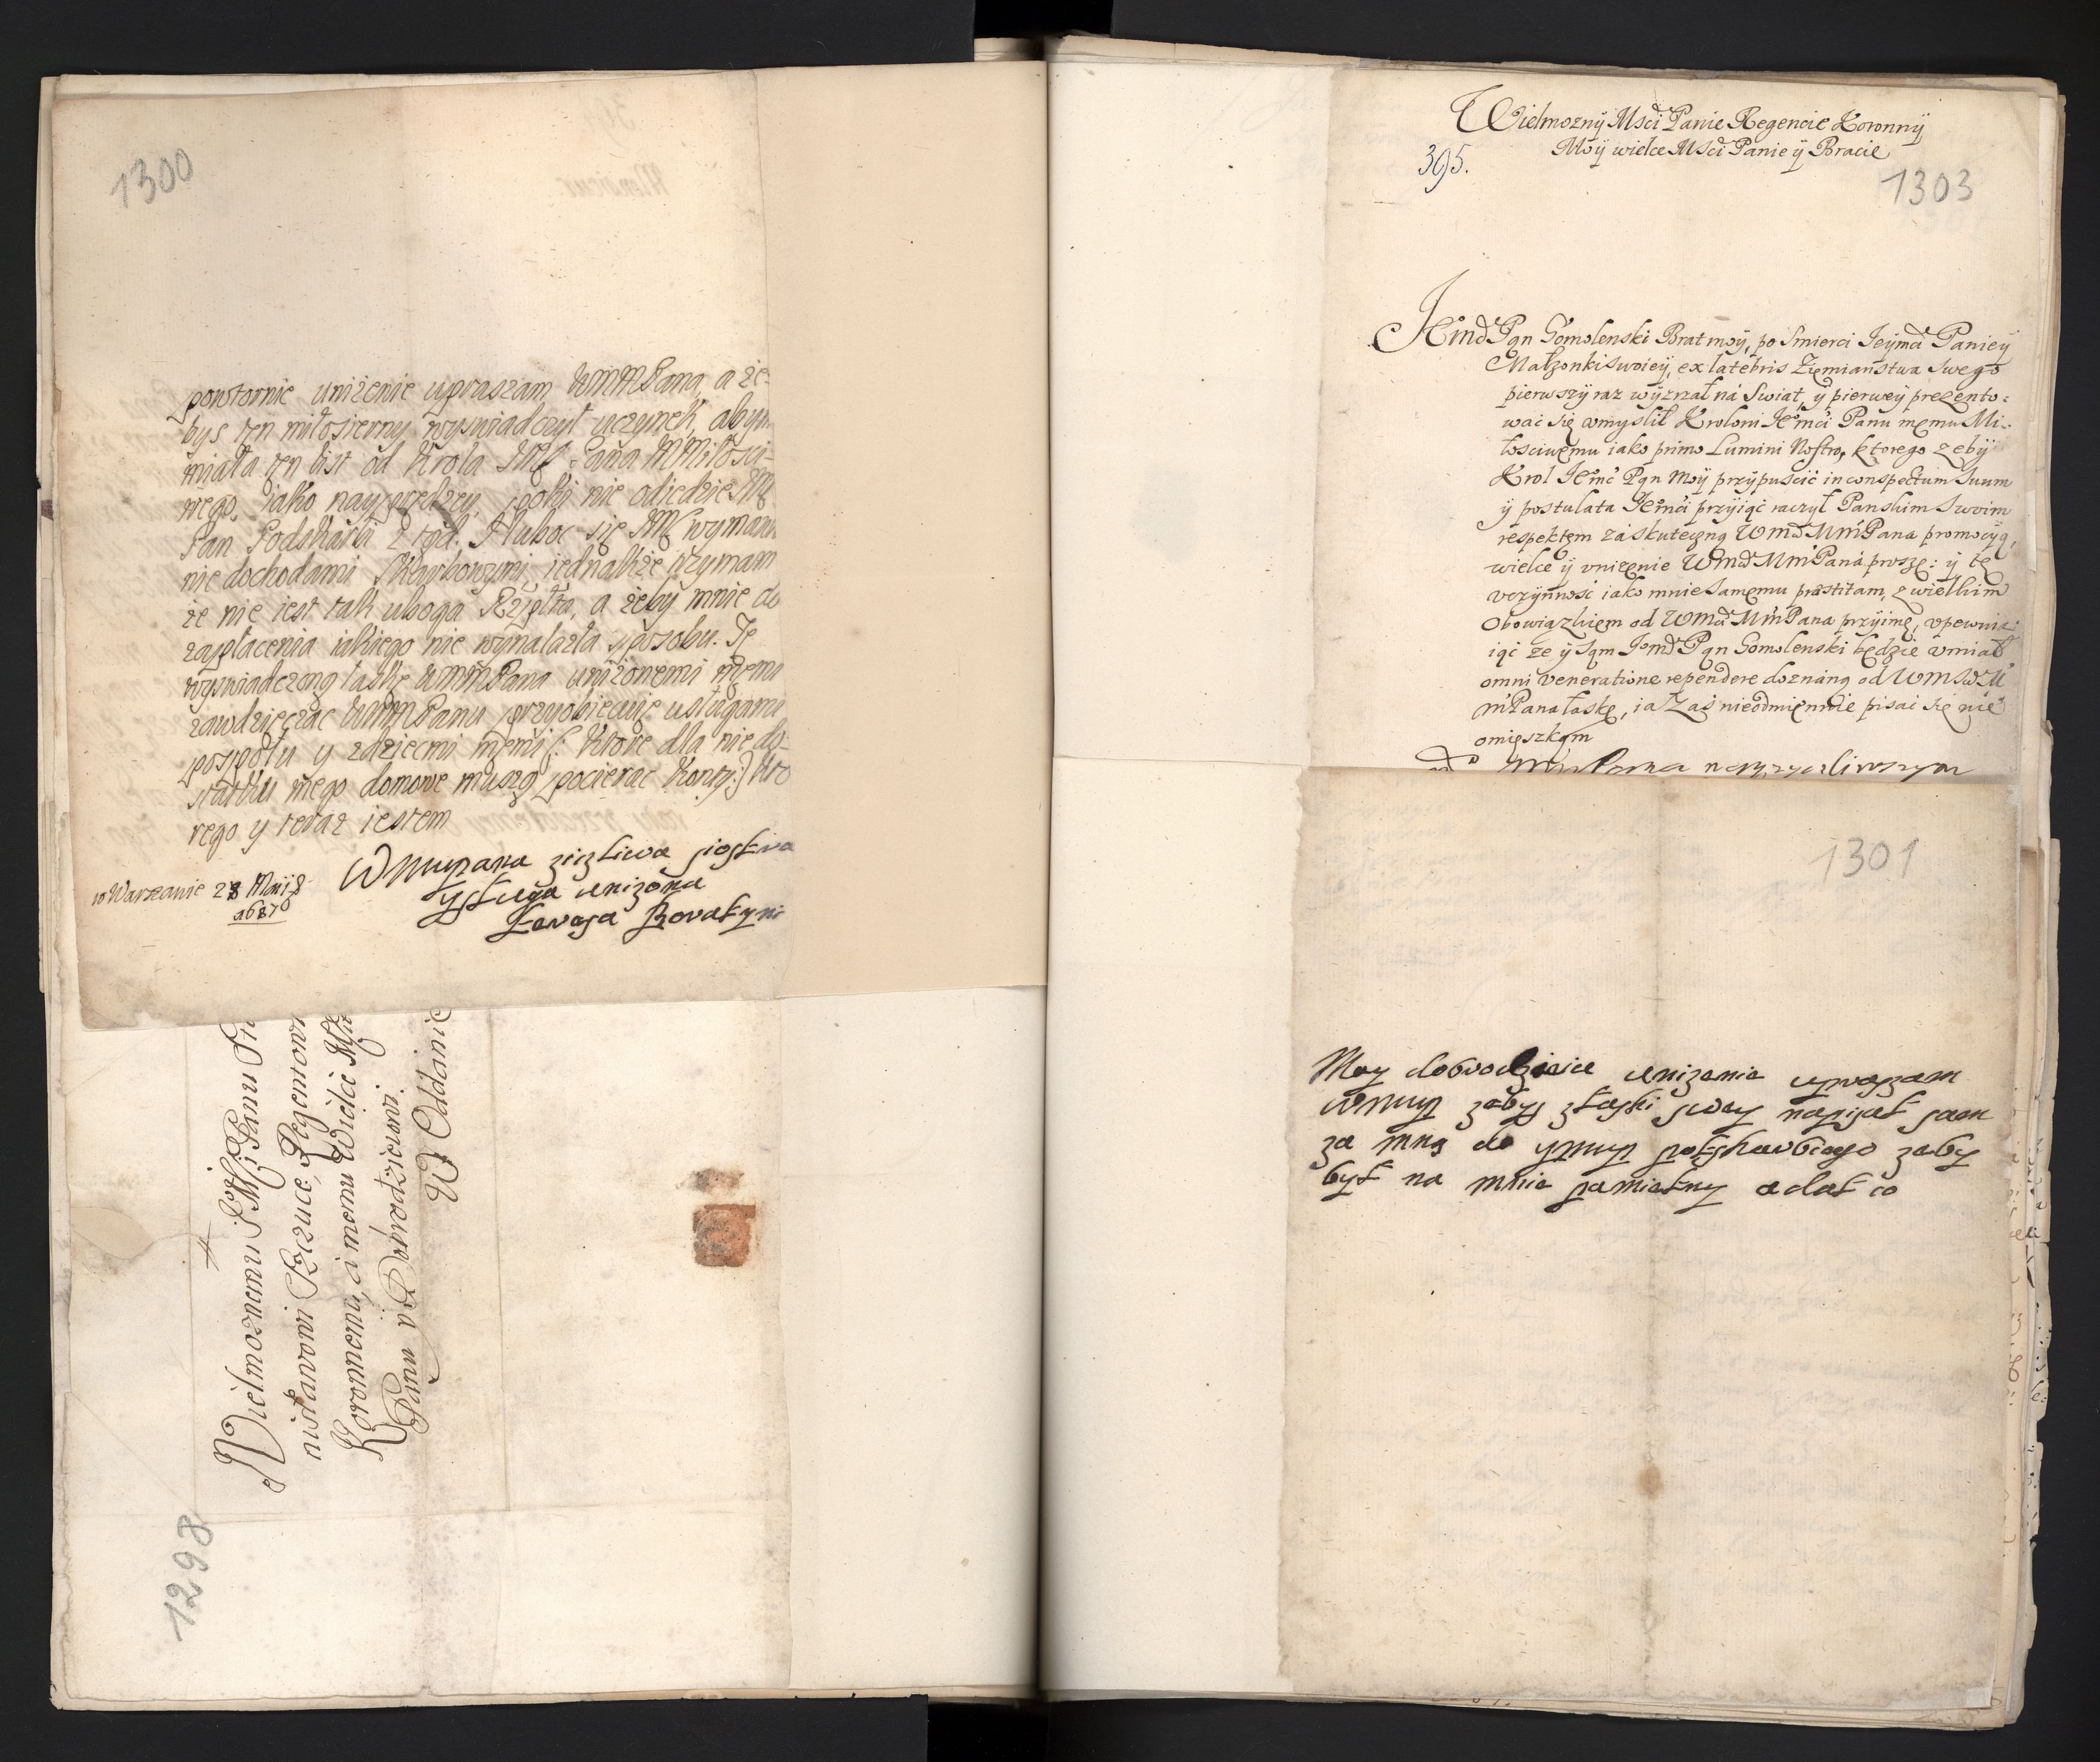 1300
powtornie uniżenie upraszam WMMPana, a że-
bys ten miłosierny wyswiadczył uczynek, abym
miała ten list od Krola JM Pana MMiłosci-
wego, iako nayprędzey, poki nie odiedzie JM
Pan Podskarbi z tąd. A luboć się JM wymawia
nie dochodami Skarbowymi, iednakże trzymam
że nie iest tak uboga Rzplta, a żeby mnie do
zapłacenia iakiego nie wynalazła sposobu. Tę
wyswiadczoną łaskę WMMPana uniżonemi memi
zawdzięczac WMMPanu przyobiecuię usługami
pospołu y zdziecmi memi (: ktore dla niedo-
statku mego domowe muszą pocierac konty:) kto
rego y teraz iestem
WMMpana zizliwa siostra
y sługa unizona
w Warszawie 28 Maij
1687
Wielmoznemu JEo Mci Panu Sta
nisławowi Szczuce, Regentowi
Koronnemu, a memu Wielce Msc
Panu y Dobrodzieiowi.
W Oddanie
1298
Wielmozny Msći Panie Regencie Koronny
Moy wielce Msći Panie y Bracie
395.
1303
JEmć Pąn Gomolenski Brat moy, po Smierci Jeymci Paniey
Małzonki swoiey, ex latebris Ziemianstwa Swego
pierwszy raz wyzrzał na Swiat, y pierwey prezento:
wać się umyslił Krolowi JEmći Panu memu Mi:
łosciwemu iako primo Lumini Nostro, ktorego zeby
Krol JEmć Pąn Moy przypuscić in conspectum Suum
y postulata JEmći przyiąć raczył Panskim Swoim
respektem zaskuteczną WmćMmPana promocyą,
wielce y unizenie WmćMmPana proszę: y tę
uczynność iako mnie Samemu præstitam, z wielkim
Obowiązkiem od WmćMmPana przyimę, upewnia:
iąć ze y Sąm Jemć Pąn Gomolenski będzie umiał
omni veneratione rependere doznaną od WMsćM
mPana łaskę, ia Zaś nieodmiennie pisać się nie
omieszkąm
1301
Moy dobrodzieia unizenie uprasam
wmmp zebys złaski swey napisał sam
za mną do ymmp potskarbiego zeby
był na mnie pamietny a dał co